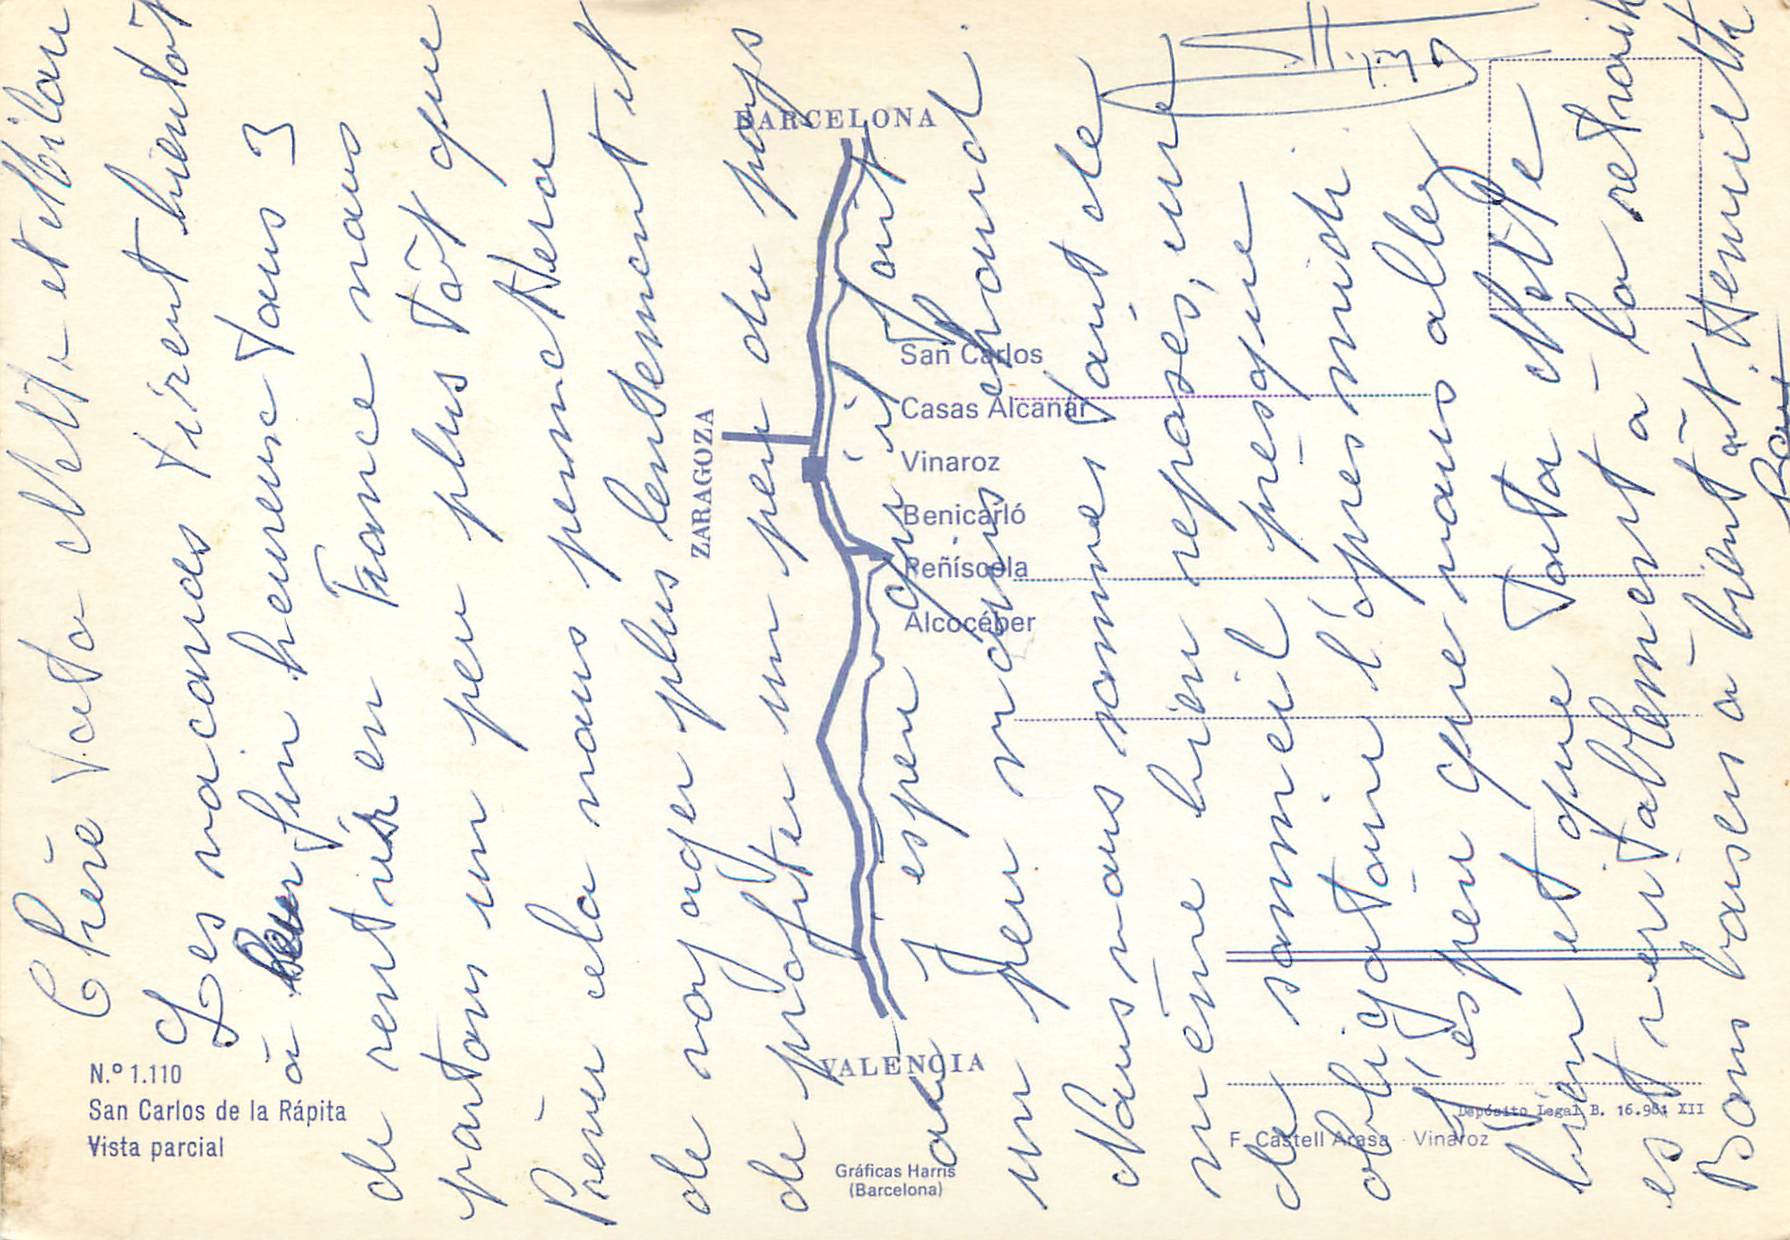 Chère Tata Nette et Milou
Les vacances tirent bientôt
à leur fin heureuse tous 3
de rentrer en France nous
partons un peu plus tôt que
Prévu cela nous permettera
de voyager plus lentement et
de profiter un peu du pays
où j'espère qu'il y fait
un peu moins chaud.
Nous nous sommes tout de
même bien reposés, une
de sommeil presque
obligatoire l'après midi.
J'espère que vous allez
bien et que Tata Nette
est véritablement à la retraite
Bons baisers à bientôt Henriette
BARCELONA
ZARAGOZA
San Carlos
Casas Alcanar
Vinaroz
Benicarló
Peñíscola
Alcocéber
VALENCIA
N.º 1.110
San Carlos de la Rápita
Vista parcial
Gráficas Harris
(Barcelona)
Depósito Legal B. 16.961 XII
F. Castell Arasa - Vinaroz